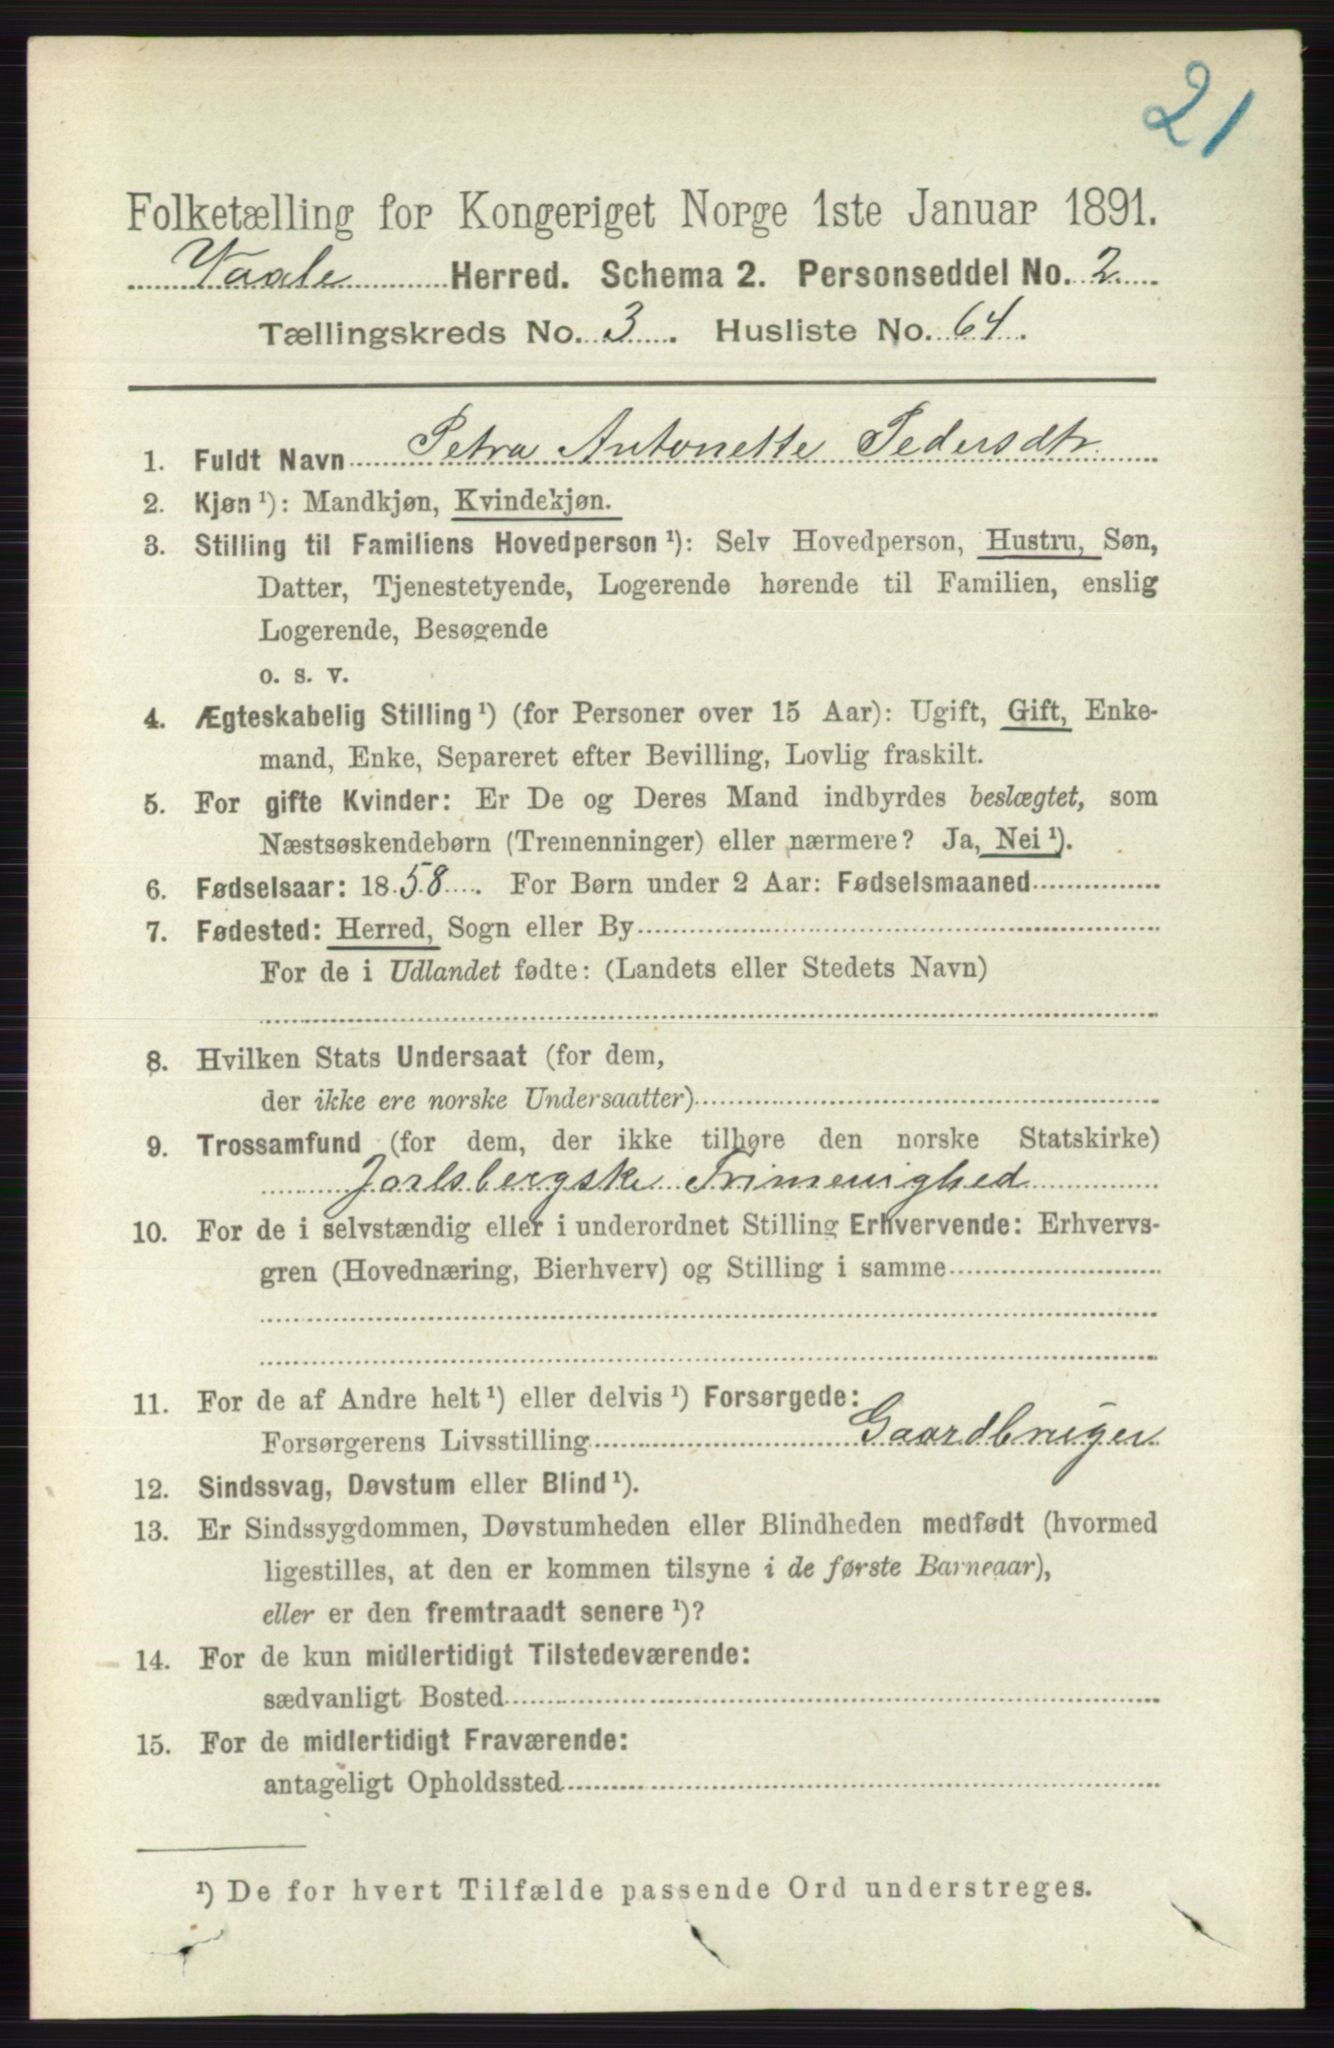 21
Folketælling for Kongeriget Norge 1ste Januar 1891.
Vaale Herred. Schema 2. Personseddel No. 2
Tællingskreds No. 3. Husliste No. 64.
1. Fuldt Navn Petra Antonette Pedersdtr.
2. Kjøn ¹): Mandkjøn, Kvindekjøn.
3. Stilling til Familiens Hovedperson ¹): Selv Hovedperson, Hustru, Søn,
Datter, Tjenestetyende, Logerende hørende til Familien, enslig
Logerende, Besøgende
o. s. v.
4. Ægteskabelig Stilling ¹) (for Personer over 15 Aar): Ugift, Gift, Enke-
mand, Enke, Separeret efter Bevilling, Lovlig fraskilt.
5. For gifte Kvinder: Er De og Deres Mand indbyrdes beslægtet, som
Næstsøskendebørn (Tremenninger) eller nærmere? Ja, Nei ¹).
6. Fødselsaar: 1858. For Børn under 2 Aar: Fødselsmaaned
7. Fødested: Herred, Sogn eller By
For de i Udlandet fødte: (Landets eller Stedets Navn)
8. Hvilken Stats Undersaat (for dem,
der ikke ere norske Undersaatter)
9. Trossamfund (for dem, der ikke tilhøre den norske Statskirke)
Jarlsbergske Frimenighed
10. For de i selvstændig eller i underordnet Stilling Erhvervende: Erhvervs-
gren (Hovednæring, Bierhverv) og Stilling i samme
11. For de af Andre helt ¹) eller delvis ¹) Forsørgede:
Forsørgerens Livsstilling Gaardbruger
12. Sindssvag, Døvstum eller Blind ¹).
13. Er Sindssygdommen, Døvstumheden eller Blindheden medfødt (hvormed
ligestilles, at den er kommen tilsyne i de første Barneaar),
eller er den fremtraadt senere ¹)?
14. For de kun midlertidigt Tilstedeværende:
sædvanligt Bosted
15. For de midlertidigt Fraværende:
antageligt Opholdssted
¹) De for hvert Tilfælde passende Ord understreges.